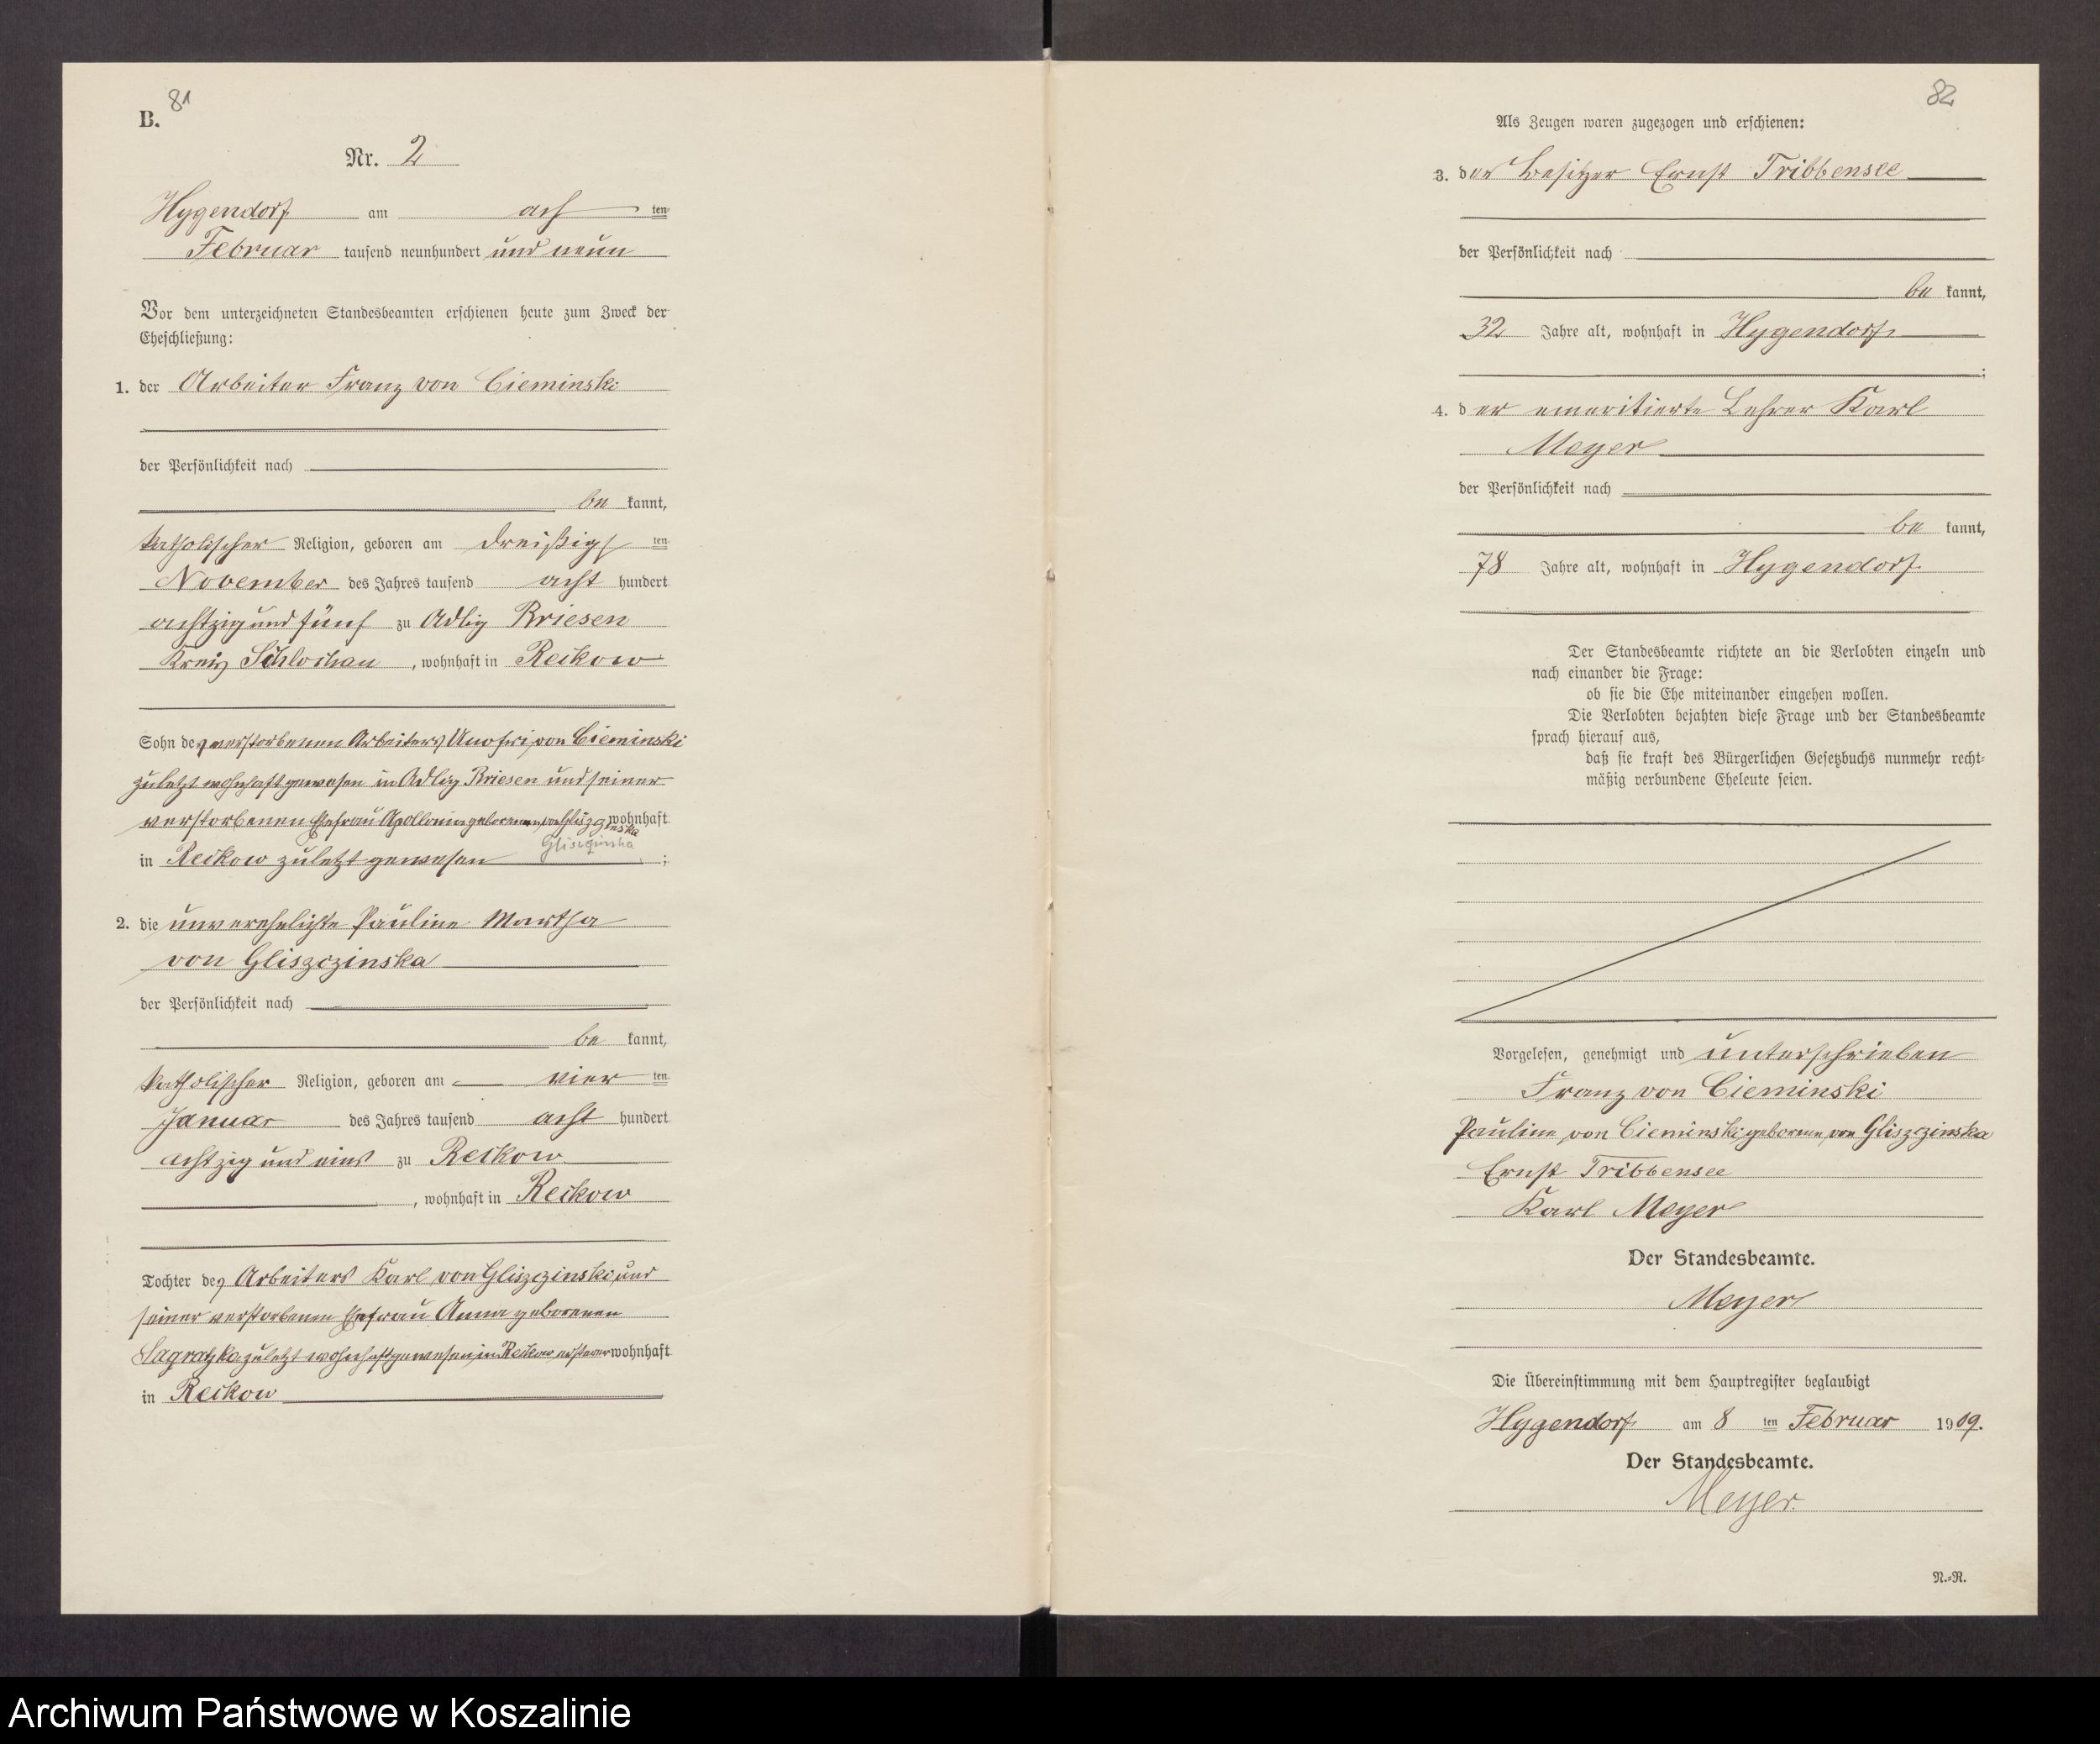 81
B.
Nr. 2
Hygendorf am ach ten
Februar tausend neunhundert und neun
Vor dem unterzeichneten Standesbeamten erschienen heute zum Zweck der
Eheschließung:
1. der Arbeiter Franz von Cieminski
der Persönlichkeit nach
be kannt,
katholischer Religion, geboren am dreißigs ten
November des Jahres tausend acht hundert
achtzig und fünf zu Adlig Briesen
Kreis Schlochau, wohnhaft in Reckow
Sohn des verstorbenen Arbeiters von Cieminski
zuletzt wohnhaft gewesen in Adlig Briesen und seiner
verstorbenen Ehefrau Apollonia geborenen von wohnhaft
in Reckow zuletzt gewesen ;
2. die unverehelichte Pauline Martha
von Gliszczinska
der Persönlichkeit nach
be kannt,
katholischer Religion, geboren am vier ten
Januar des Jahres tausend acht hundert
achtzig und eins zu Reckow
, wohnhaft in Reckow
Tochter des Arbeiters Karl von Gliszczinski und
seiner verstorbenen Ehefrau Anna geborenen
zuletzt wohnhaft gewesen in Reckow, ersterer wohnhaft
in Reckow
82
Als Zeugen waren zugezogen und erschienen:
3. der Besitzer Ernst Tribbensee
der Persönlichkeit nach
be kannt,
32 Jahre alt, wohnhaft in Hygendorf
;
4. der emeritierte Lehrer Karl
Meyer
der Persönlichkeit nach
be kannt,
78 Jahre alt, wohnhaft in Hygendorf
Der Standesbeamte richtete an die Verlobten einzeln und
nach einander die Frage:
ob sie die Ehe miteinander eingehen wollen.
Die Verlobten bejahten diese Frage und der Standesbeamte
sprach hierauf aus,
daß sie kraft des Bürgerlichen Gesetzbuchs nunmehr recht-
mäßig verbundene Eheleute seien.
Vorgelesen, genehmigt und unterschrieben
Franz von Cieminski
Pauline von Cieminski geborene von Gliszczinska
Ernst Tribbensee
Karl Meyer
Der Standesbeamte.
Meyer
Die Übereinstimmung mit dem Hauptregister beglaubigt
Hygendorf am 8 ten Februar 1909.
Der Standesbeamte.
Meyer.
N.-R.
Archiwum Państwowe w Koszalinie